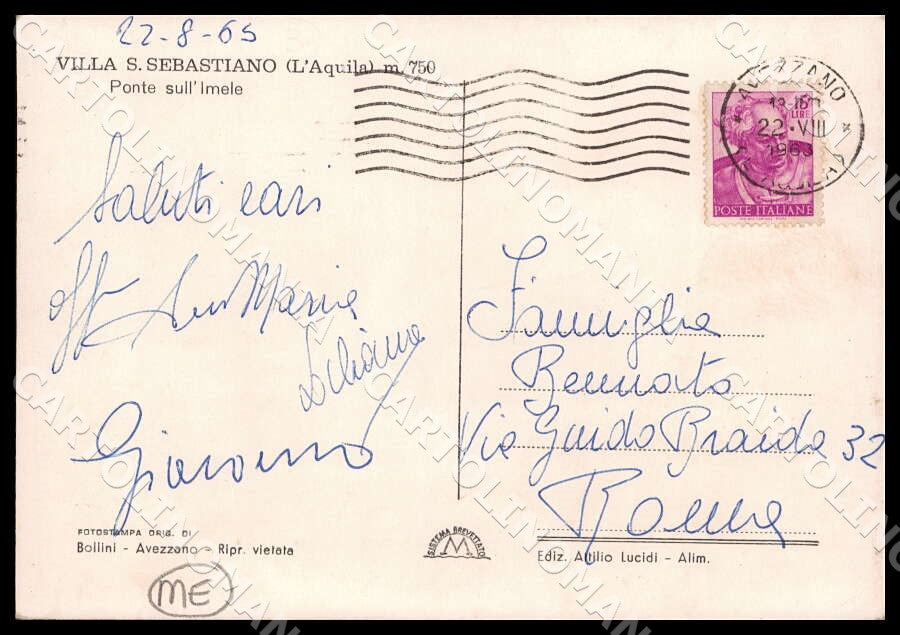 22-8-65
VILLA S. SEBASTIANO (L'Aquila) m. 750
Ponte sull'Imele
AVEZZANO
22·VIII
LIRE
POSTE ITALIANE
Saluti cari
Maria
Giovanni
Famiglia
Bennato
Via Guido Braida 32
Roma
FOTOSTAMPA ORIG. DI
Bollini - Avezzano - Ripr. vietata
SISTEMA BREVETTATO
M
Ediz. Attilio Lucidi - Alim.
ME
CARTOLINOMANIA